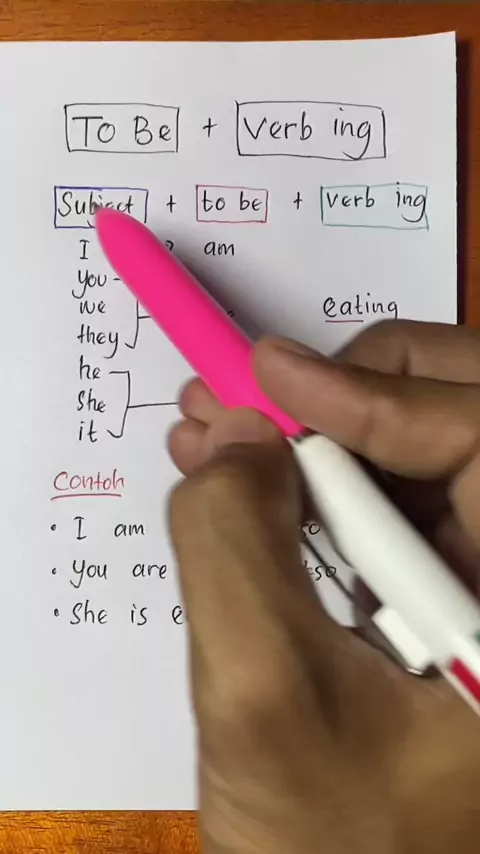 To Be + Verb ing
Subject + to be + verb ing
I am
you
we
they
he
she
it
eating
Contoh
• I am
• you are
• She is